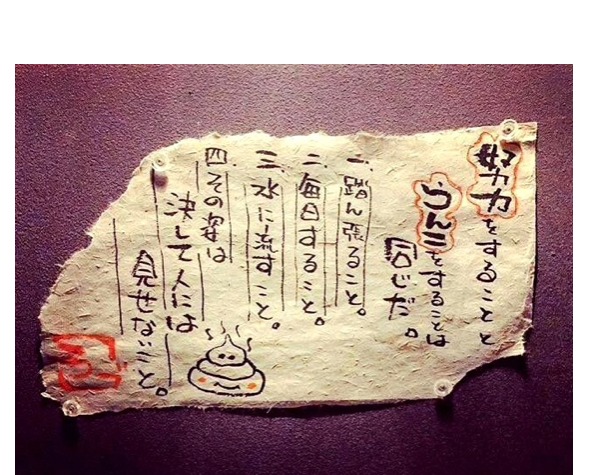 努力をすることと
うんこをすることは
同じだ。
一、踏ん張ること。
二、毎日すること。
三、水に流すこと。
四その姿は
決して人には
見せないこと。